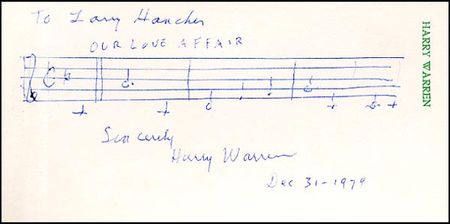 To Larry Hancher
OUR LOVE AFFAIR
Sincerely
Harry Warren
Dec 31-1979
HARRY WARREN